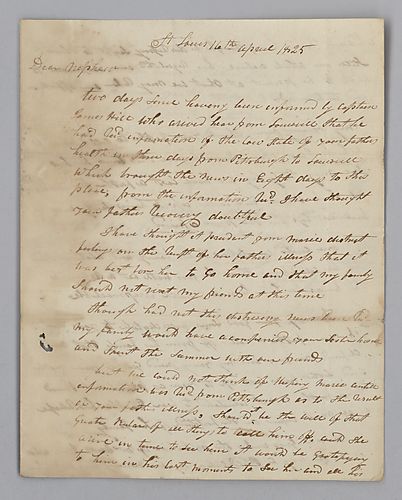 St Louis 16th April 1825
Dear Nephew
two days since having been informed by Captain
James Hill who arived hear from Louisvill that he
had Recd information of the low State of your fathers
health in three days from Pittsburgh to Louisvill
which brought the news in Eight days to this
place, from the information Recd. I have thought
your father Recovery doubtful
I have thought it prudent from
feelings on the of her fathers illness that it
was best for her to Go home and that my family
Should not visit my friends at this time
though had not this distressing news been Recd
my family would have accompenied your Sister home
and Spent the Summer with our friends
but we could not think of keeping until
information was Recd from Pittsburgh as to the Result
of your fathers illness, Should be the will of that
Great of all things to call him off, and She
arive in time to See him it would be
to him in his last moments to See his and all his